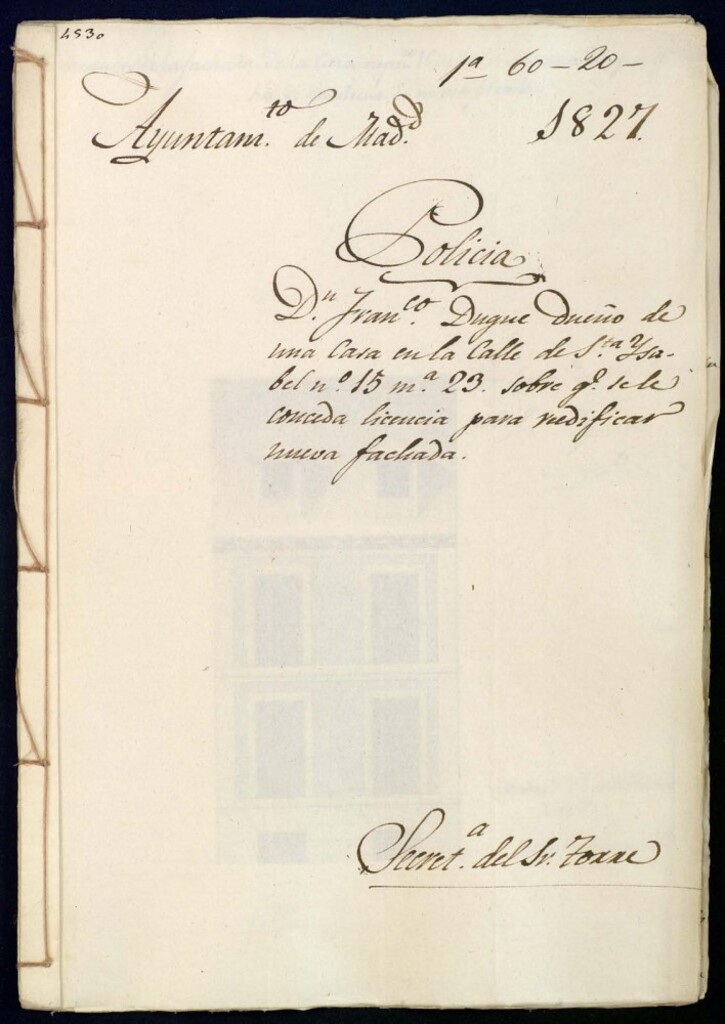 4530
1ª 60-20-
Ayuntam.to de Mad.d 1827.
Policia
D.n Fran.co Duque dueño de
una Casa en la Calle de S.ta Ysa-
bel n.º 15 m.ª 23. sobre q.e se le
conceda licencia para redificar
nueva fachada.
Secret.a del Sr. Torre